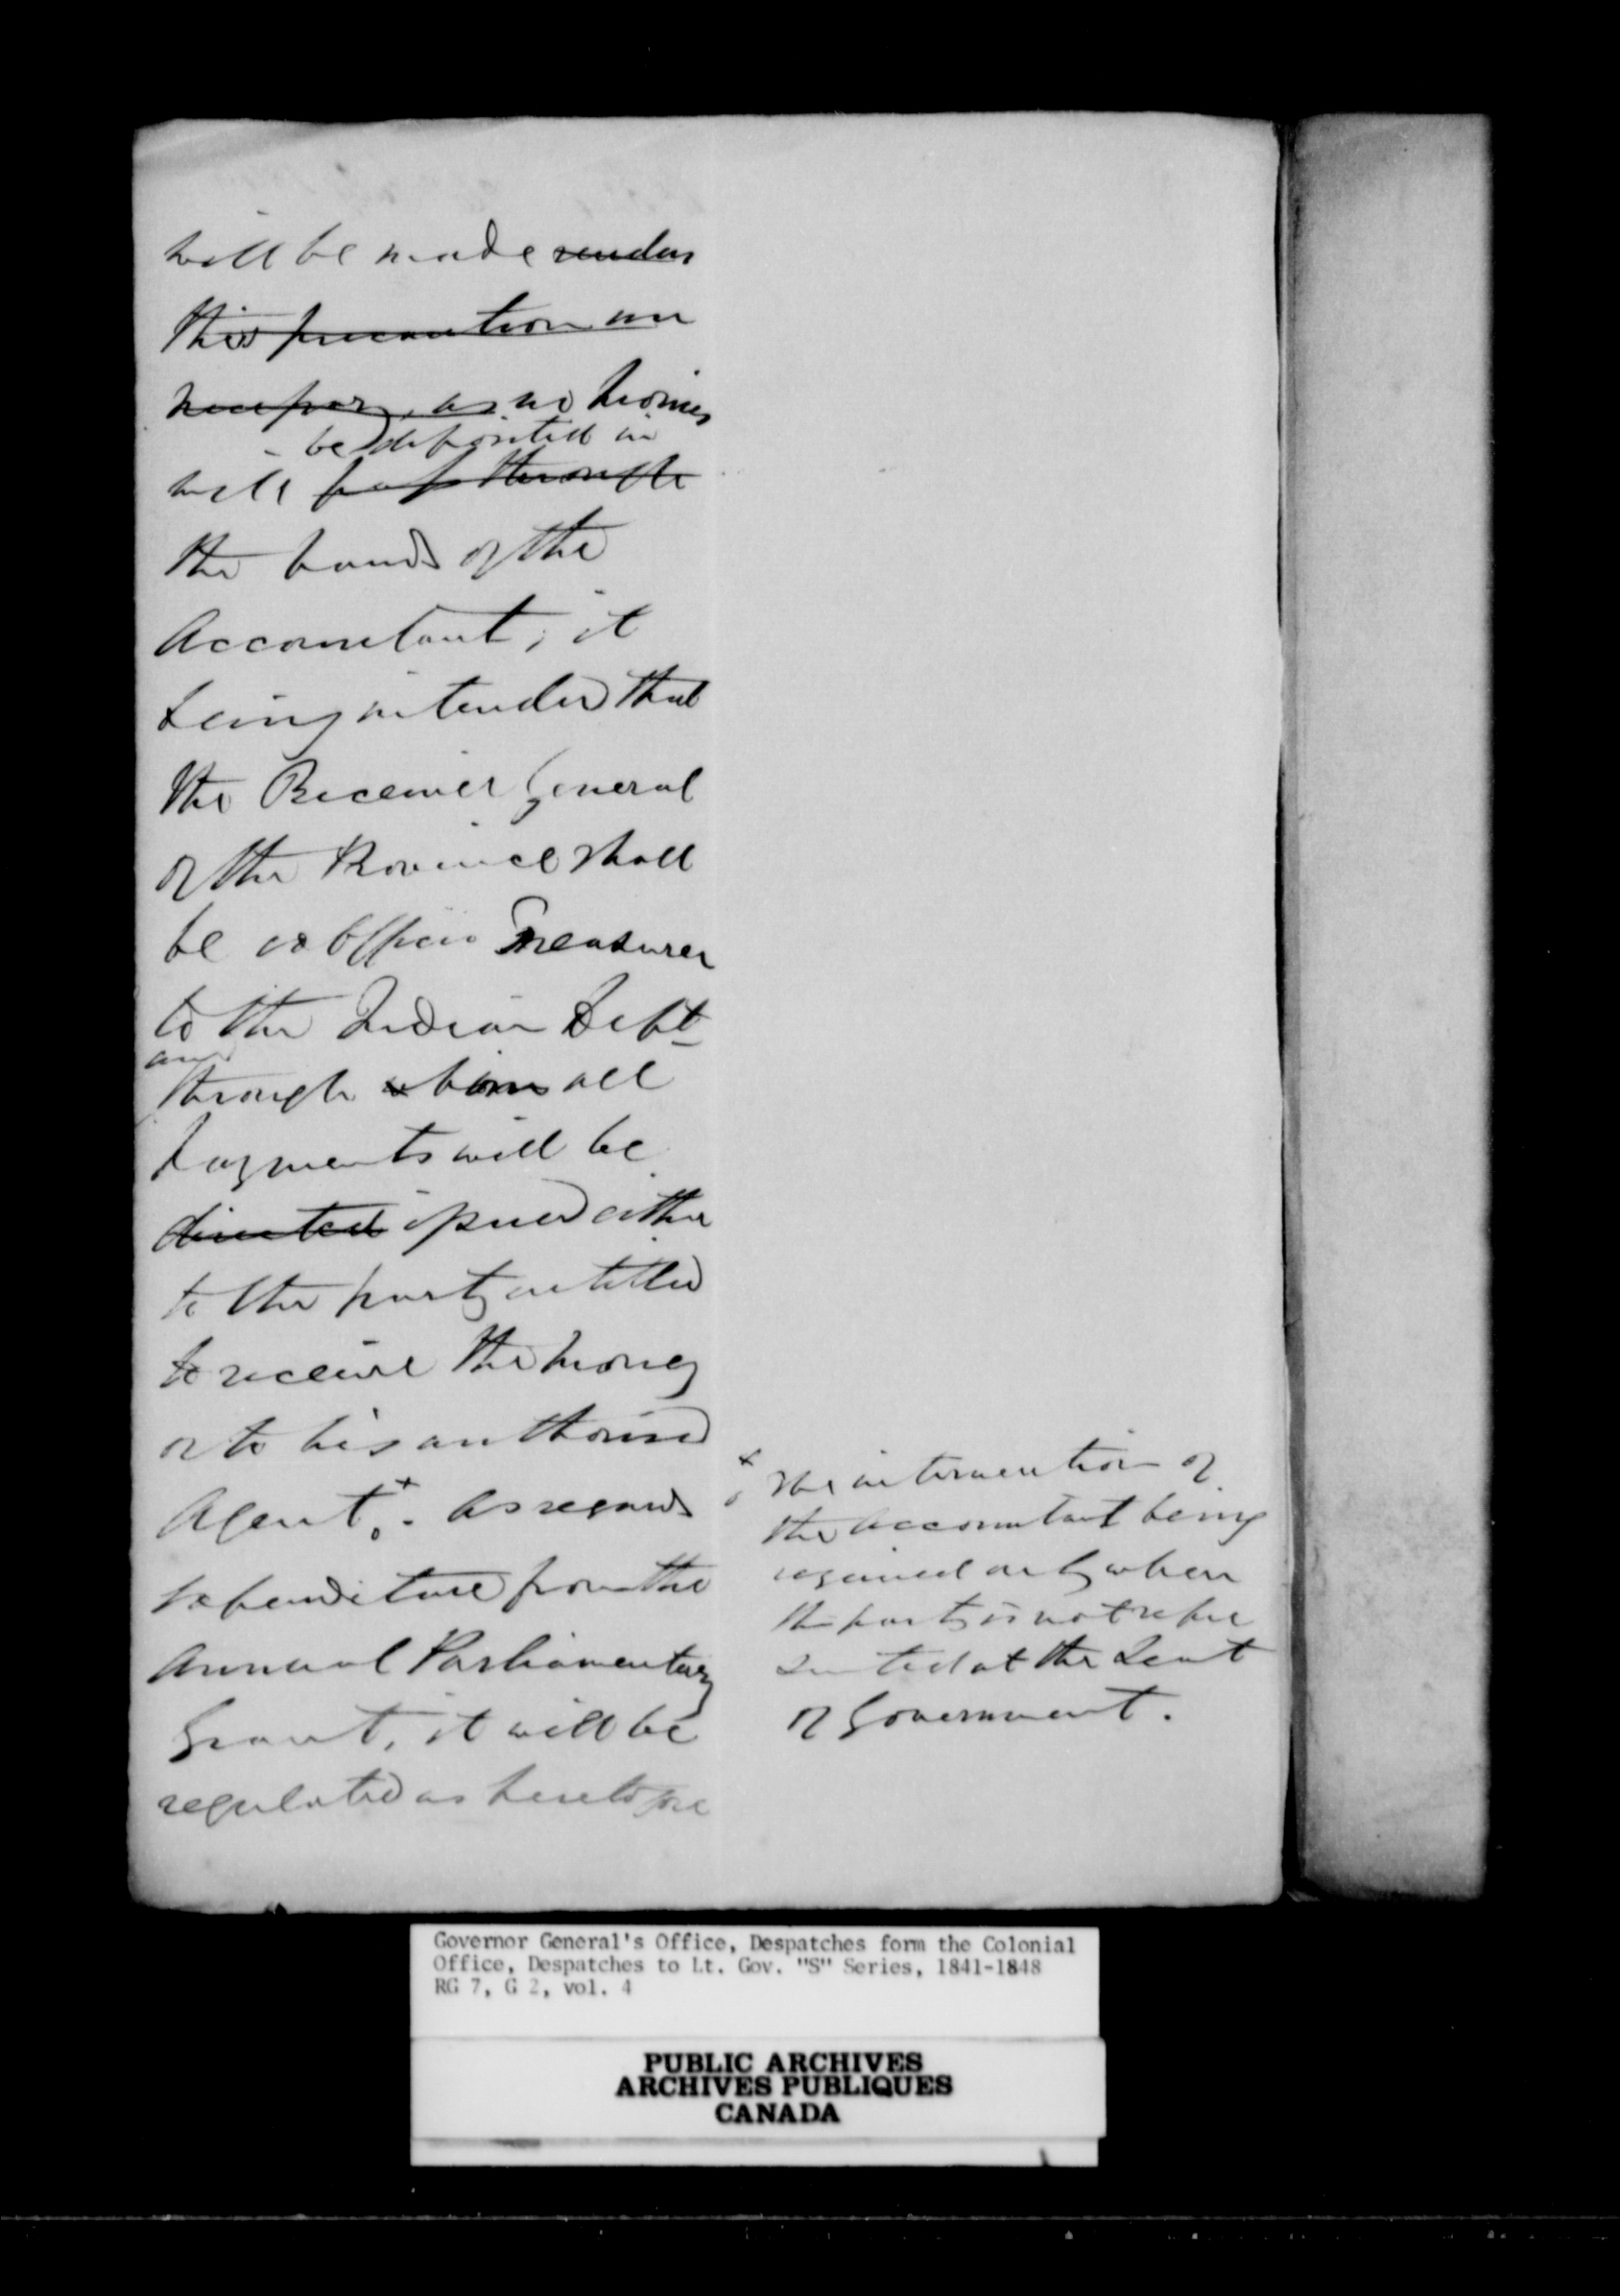 will be made renders
this precaution un
necessary, as no monies
be deposited in
will pass through
the hands of the
Accountant; it
being intended that
the Receiver General
of the Province shall
be ex Officio Treasurer
to the Indian Dept
and
through whom all
payments will be
directed issued either
to the party entitled
to receive the money
or to his authorised
Agent. x As regards
Expenditure from the
Annual Parliamentary
Grant, it will be
regulated as heretofore
x The intervention of
the Accountant being
required only when
the party is not repre
sented at the Seat
of Government.
Governor General's Office, Despatches form the Colonial
Office, Despatches to Lt. Gov. "S" Series, 1841-1848
RG 7, G 2, vol. 4
PUBLIC ARCHIVES
ARCHIVES PUBLIQUES
CANADA